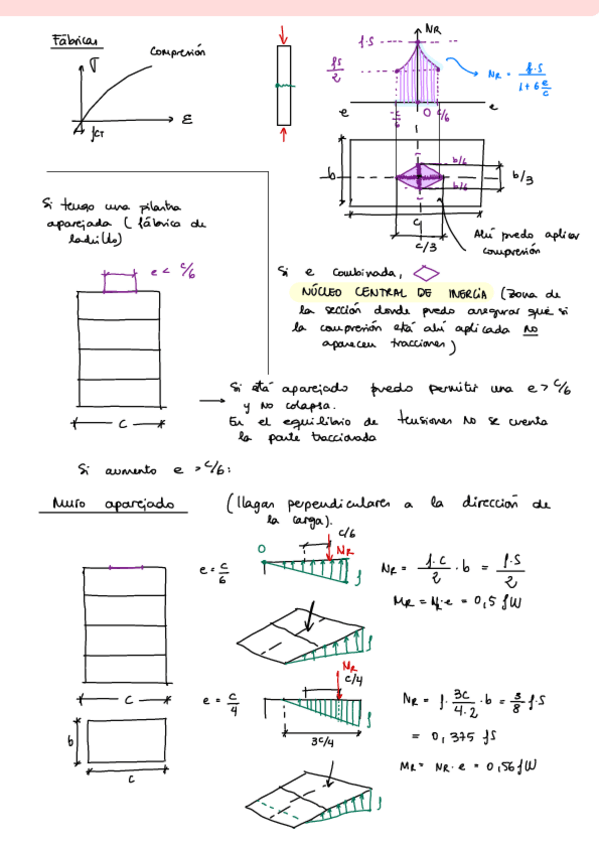 Fábricas
σ
Compresión
ε
fct
NR
f·S
fS/2
NR = f·S / 1+6 e/c
e
-c/6
0
c/6
e
b
b/6
b/6
b/3
c
c/3
Ahí puedo aplicar
compresión
Si tengo una pilastra
aparejada (fábrica de
ladrillo)
e < c/6
c
Si e combinada,
NÚCLEO CENTRAL DE INERCIA (zona de
la sección donde puedo asegurar que si
la compresión está ahí aplicada no
aparecen tracciones)
Si está aparejado puedo permitir una e > c/6
y no colapsa.
En el equilibrio de tensiones no se cuenta
la parte traccionada
Si aumento e > c/6:
Muro aparejado (llagas perpendiculares a la dirección de
la carga).
e = c/6
0
c/6
NR
f
NR = f·c/2 · b = f·S/2
MR = N·e = 0,5 fW
c
b
c
e = c/4
NR
c/4
f
3c/4
NR = f· 3c/4·2 · b = 3/8 f·S
= 0,375 fS
MR = NR·e = 0,56 fW
f
f